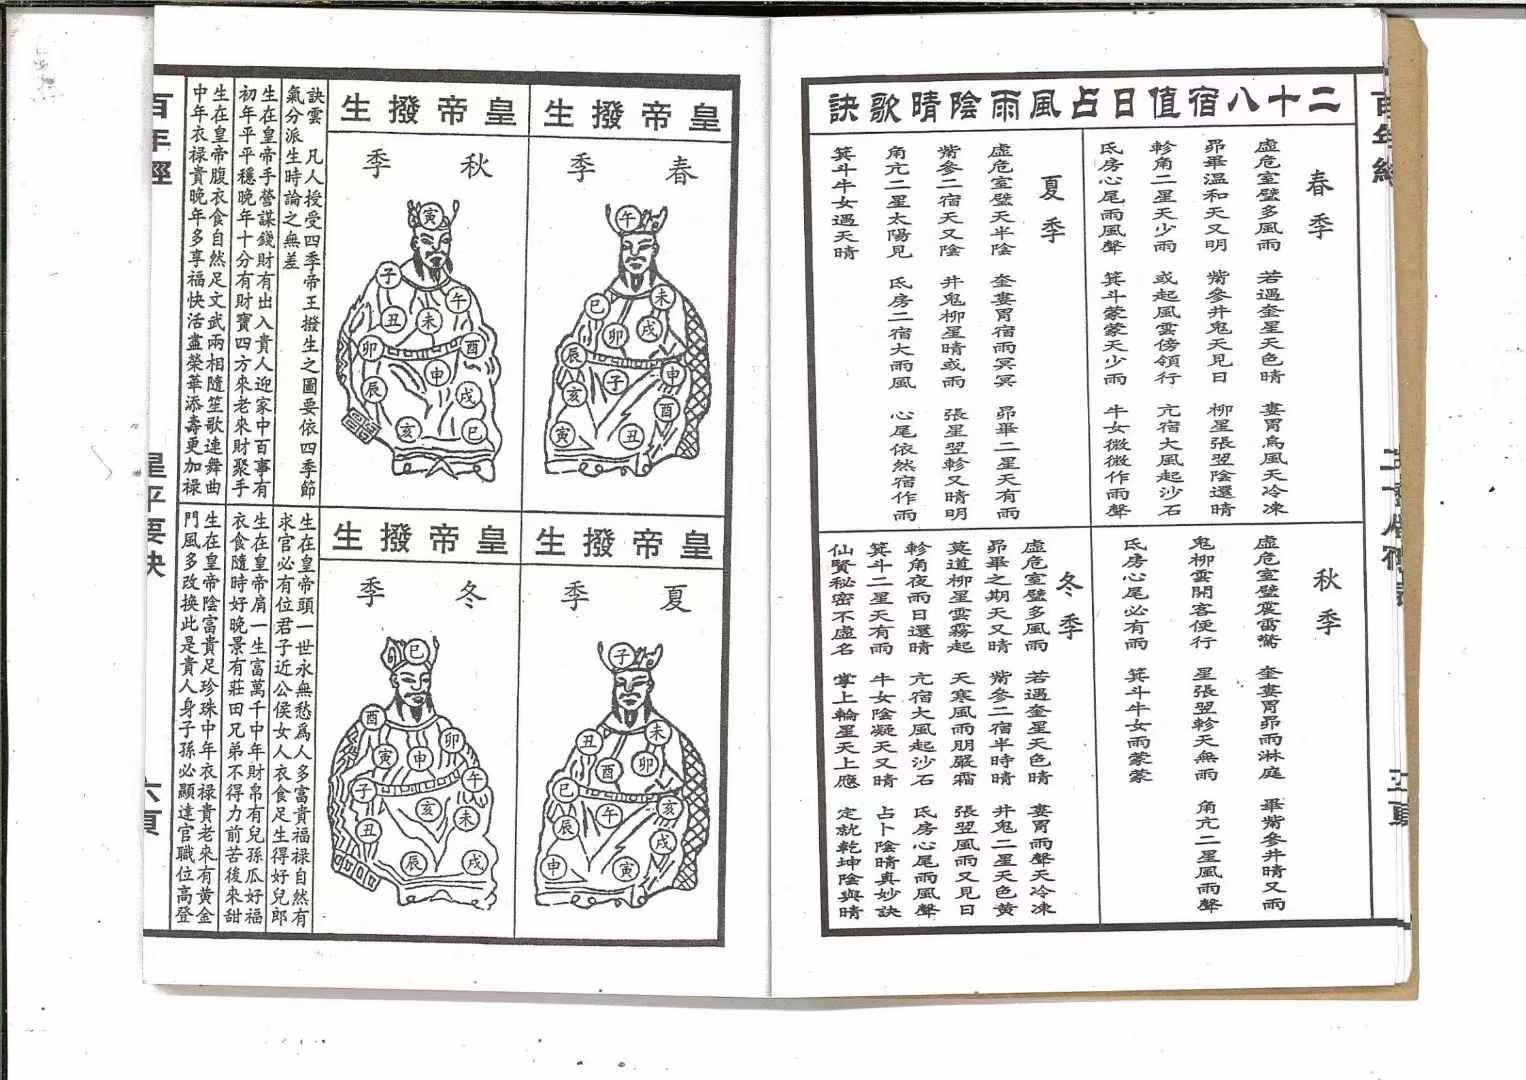 二十八宿值日占風雨陰晴歌訣
春季
虛危室壁多風雨 若遇奎星天色晴 婁胃烏風天冷凍
昴畢溫和天又明 觜參井鬼天見日 柳星張翌陰還晴
軫角二星天少雨 或起風雲傍領行 亢宿大風起沙石
氐房心尾雨風聲 箕斗蒙蒙天少雨 牛女微微作雨聲
夏季
虛危室壁天半陰 奎婁胃宿雨冥冥 昴畢二星天有雨
觜參二宿天又陰 井鬼柳星晴或雨 張星翌軫又晴明
角亢二星太陽見 氐房二宿大雨風 心尾依然宿作雨
箕斗牛女遇天晴
秋季
虛危室壁震雷驚 奎婁胃昴雨淋庭 畢觜參井晴又雨
鬼柳雲開客便行 星張翌軫天無雨 角亢二星風雨聲
氐房心尾必有雨 箕斗牛女雨蒙蒙
冬季
虛危室壁多風雨 若遇奎星天色晴 婁胃雨聲天冷凍
昴畢之期天又晴 觜參二宿半時晴 井鬼二星天色黃
莫道柳星雲霧起 天寒風雨朋嚴霜 張翌風雨又見日
軫角夜雨日還晴 亢宿大風起沙石 氐房心尾雨風聲
箕斗二星天有雨 牛女陰凝天又晴 占卜陰晴真妙訣
仙賢秘密不虛名 掌上輪星天上應 定就乾坤陰與晴
皇帝撥生
春季
午
未
巳
戌
卯
辰
申
子
亥
酉
寅
丑
皇帝撥生
夏季
子
未
丑
卯
酉
巳
亥
午
辰
戌
申
寅
皇帝撥生
秋季
寅
子
午
丑
未
卯
酉
申
辰
戌
亥
巳
皇帝撥生
冬季
巳
酉
卯
寅
申
午
子
亥
未
丑
辰
戌
訣雲 凡人授受四季帝王撥生之圖要依四季節
氣分派生時論之無差
生在皇帝手營謀錢財有出入貴人迎家中百事有
初年平平穩晚年十分有財寶四方來老來財聚手
生在皇帝腹衣食自然足文武兩相隨笙歌達舞曲
中年衣祿貴晚年多享福快活盡榮華添壽更加祿
生在皇帝頭一世永無愁為人多富貴福祿自然有
求官必有位君子近公侯女人衣食足生得好兒郎
生在皇帝肩一生富萬千中年財帛有兒孫瓜好福
衣食隨時好晚景有莊田兄弟不得力前苦後來甜
生在皇帝陰富貴足珍珠中年衣祿貴老來有黃金
門風多改換此是貴人身子孫必顯達官職位高登
百年經
星平要訣
六頁